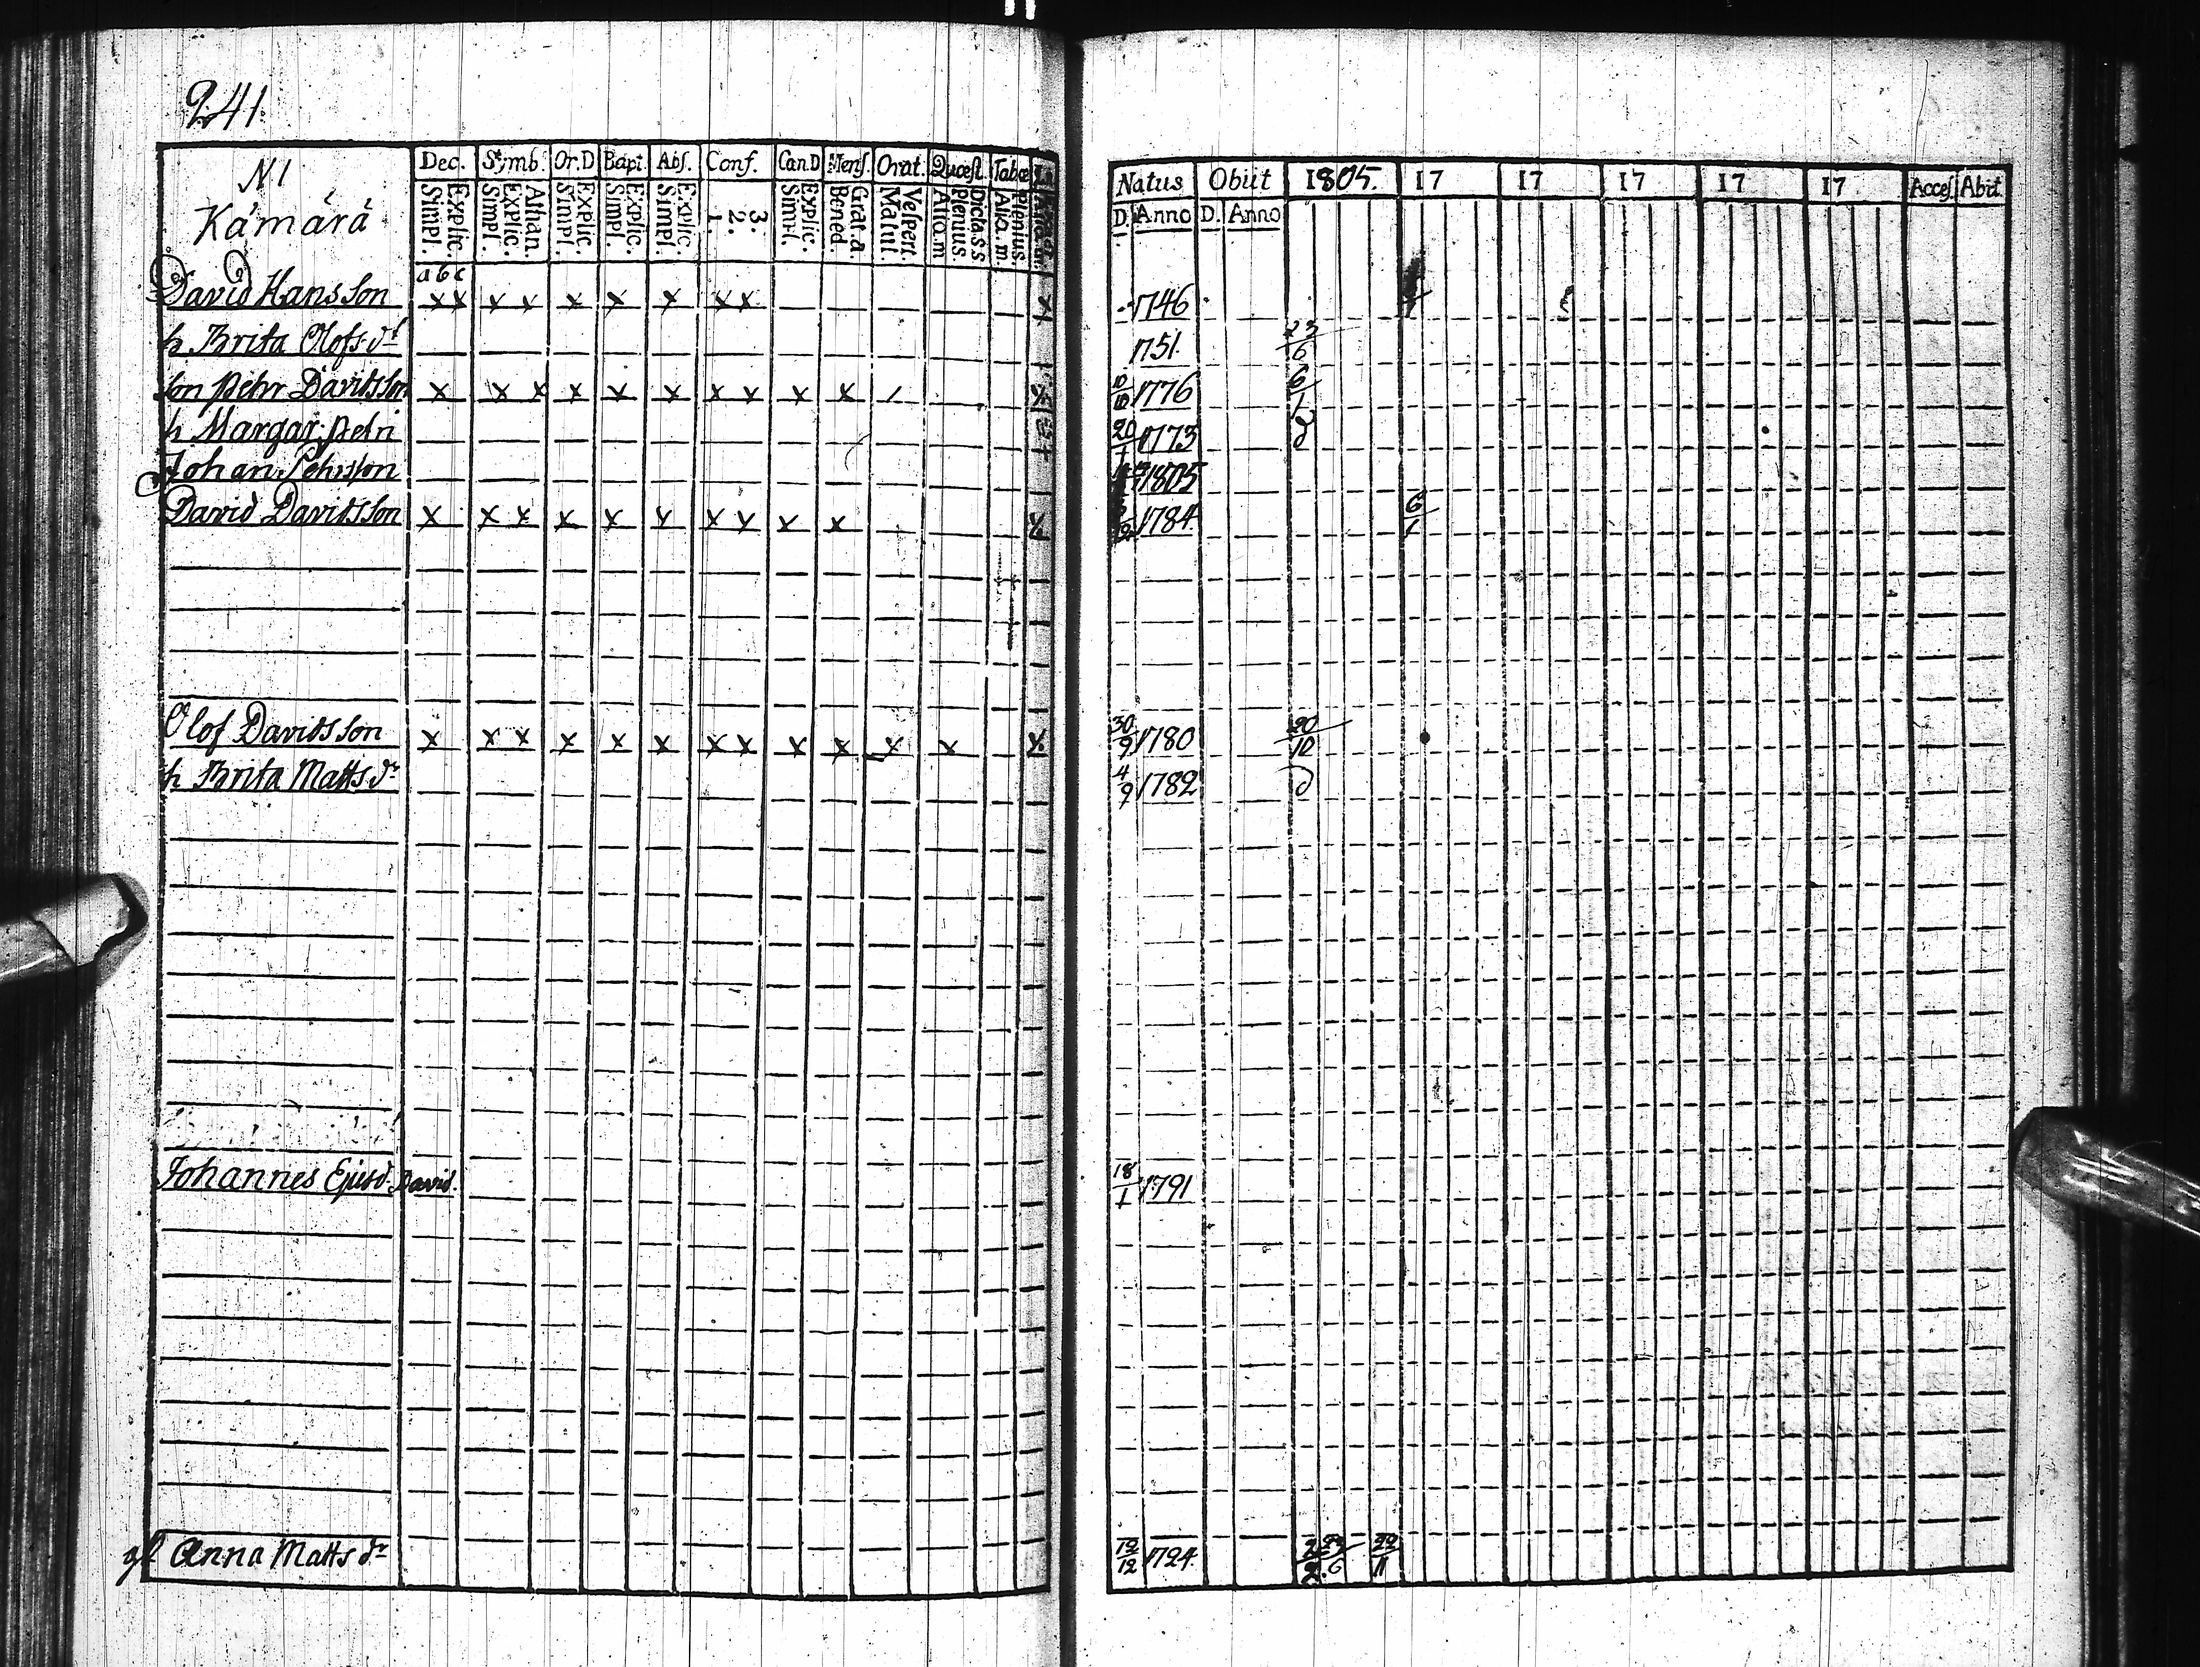 241.
N1
Kåmårå
Dec. Symb. Or.D Bapt. Abs. Conf. Can.D Mens. Orat. Quæst. Tabæ
Explic. Simpl. Athan. Explic. Simpl. Explic. Simpl. Explic. Simpl. Explic. Simpl. 3. 2. 1. Explic. Simpl. Grat. a. Bened. Vespert. Matut. Dicta s.s Plenius Aliq. m Plenius. Aliq. m.
Natus Obiit 1805. 17 17 17 17 17 Acces. Abit.
D. Anno D. Anno
a b c
David Hansson x x x x x x x x x x 1746
h. Brita Olofs dr 1751. 23/6
Son Pehr Davidsson x x x x x x x x x x / 10/10 1776 6/1
h Margar. Petri 20/1 1773 d
Johan Pehrsson 1805
David Davidsson x x x x x x x x x x 1784 6/1
Olof Davidsson x x x x x x x x x x x x x 30/9 1780 20/10
h Brita Matts dr 4/9 1782 d
Johannes Ejusd. David. 18/1 1791
gl Anna Matts dr 12/12 1724 2/2 29/6 22/11